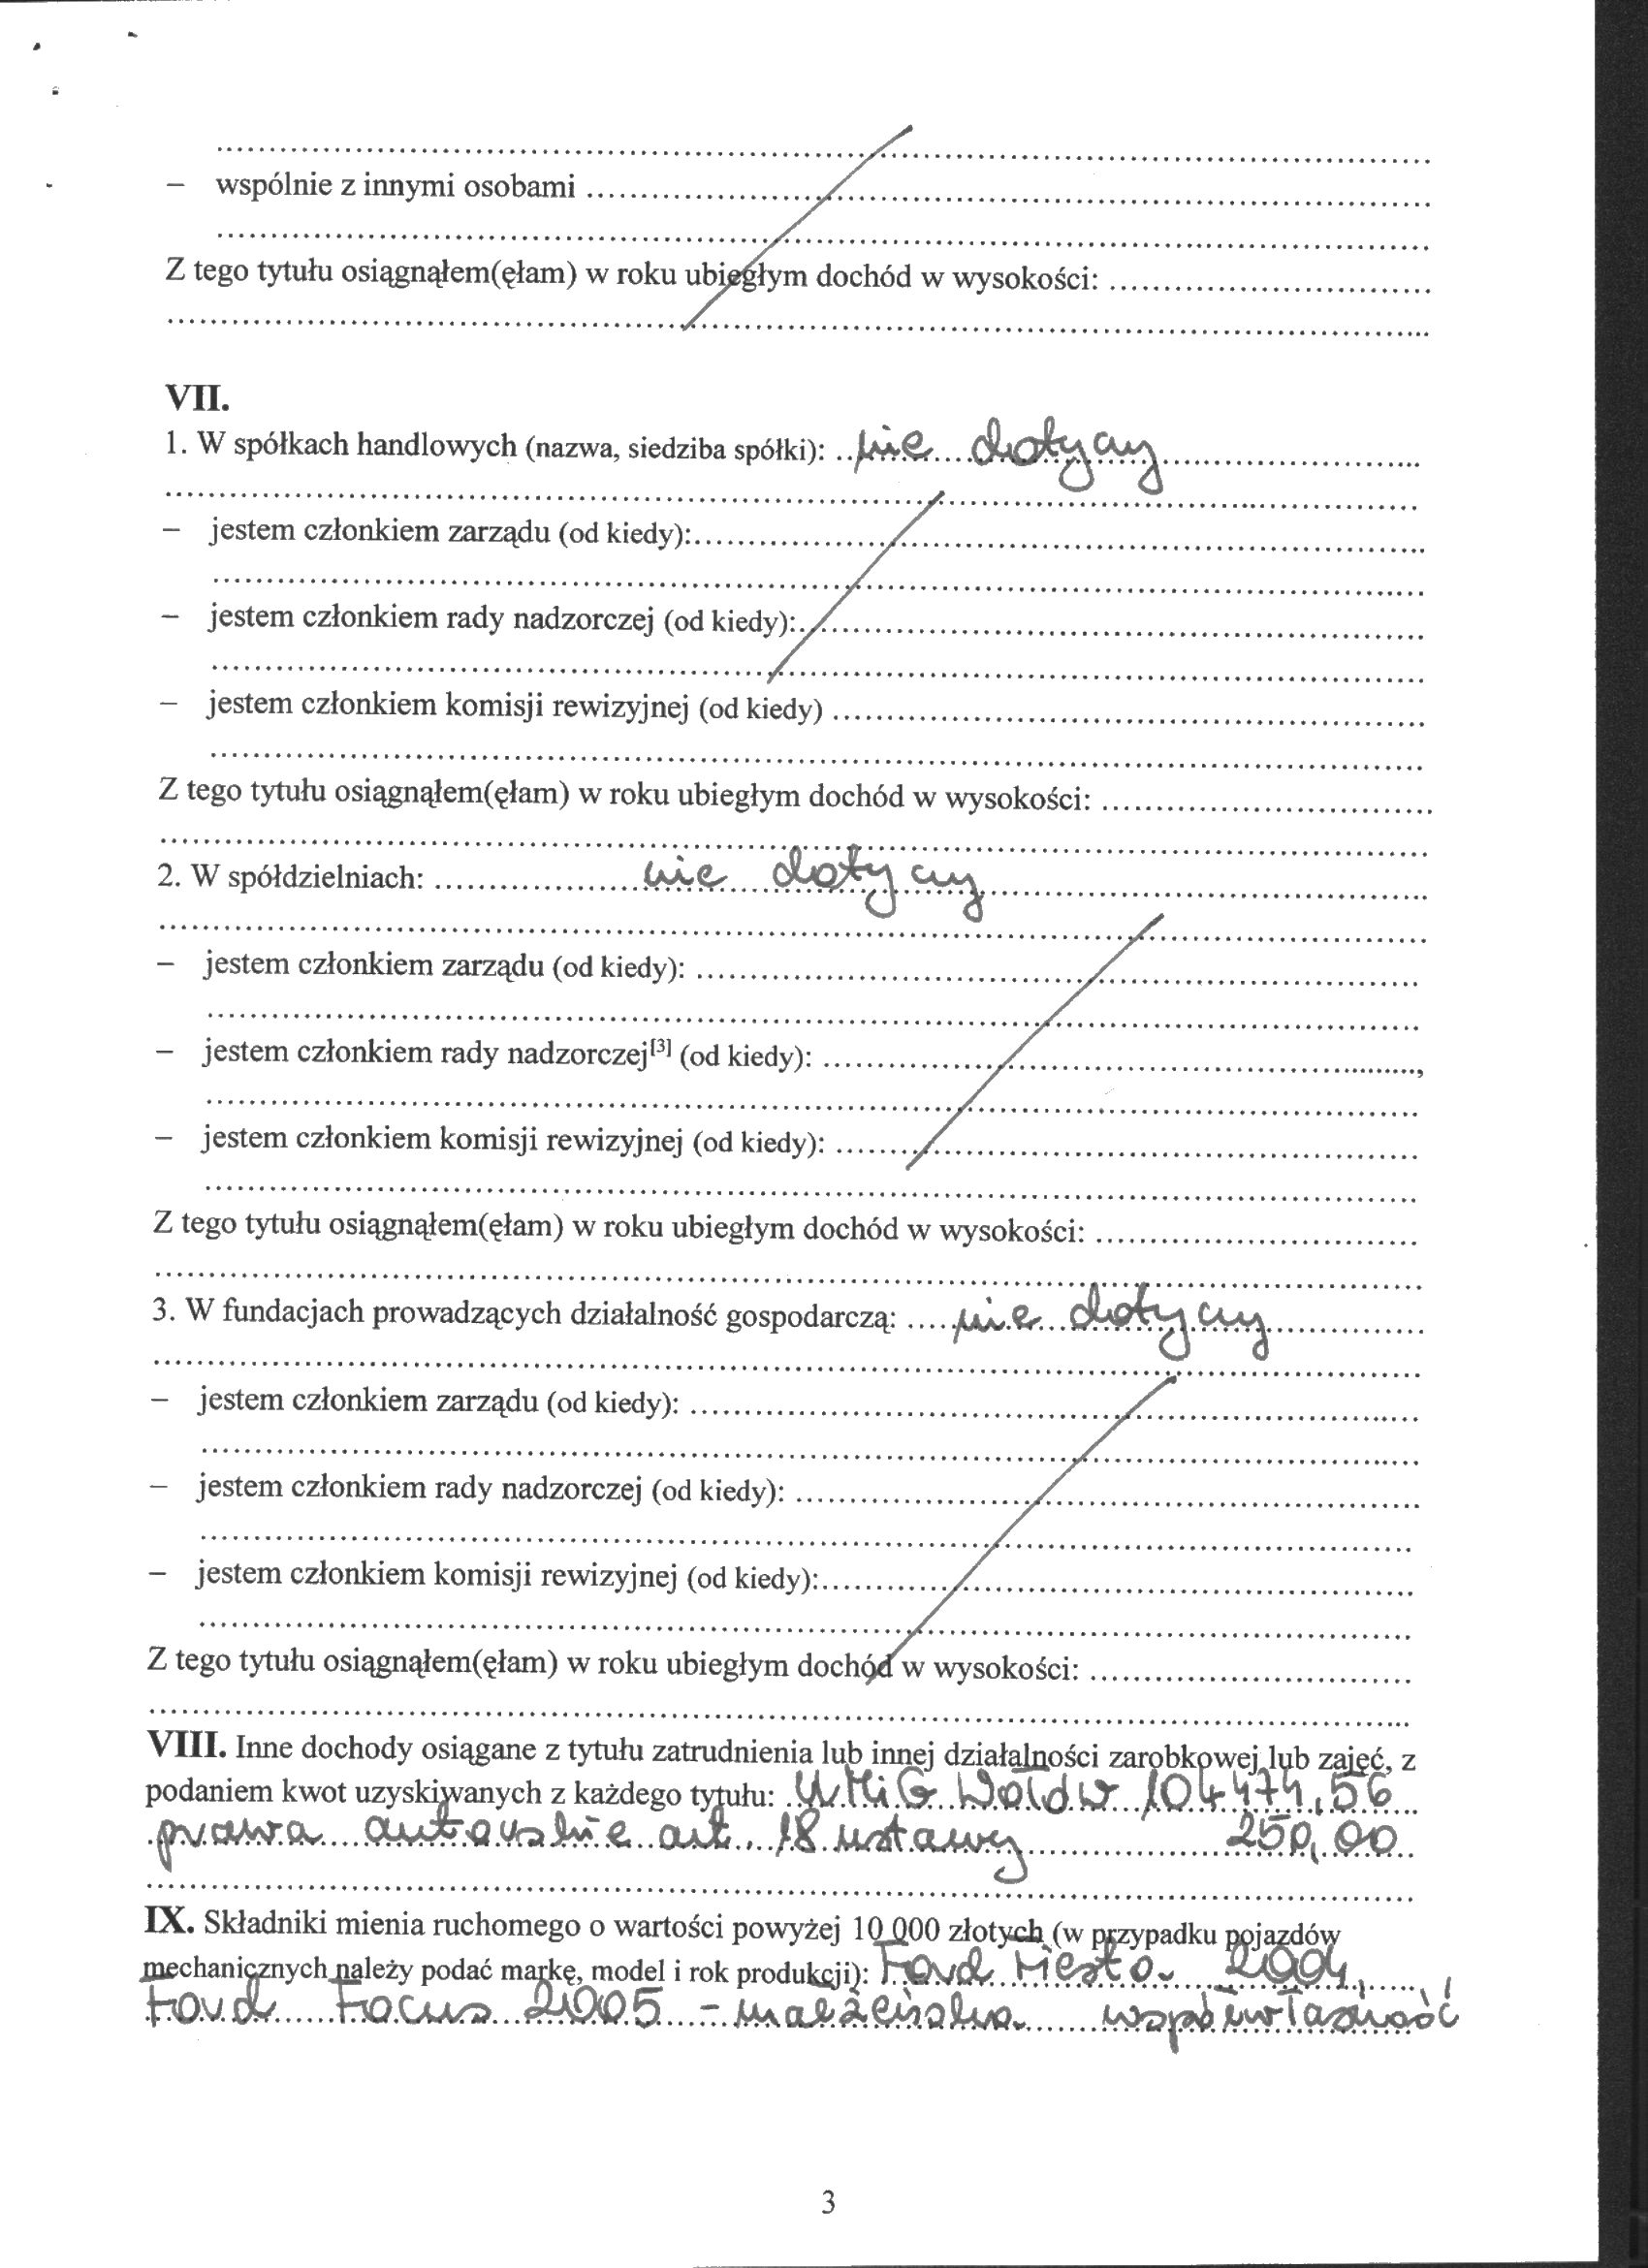 – wspólnie z innymi osobami ........................................
Z tego tytułu osiągnąłem(ęłam) w roku ubiegłym dochód w wysokości: ..............................
VII.
1. W spółkach handlowych (nazwa, siedziba spółki): nie dotyczy
– jestem członkiem zarządu (od kiedy):..............................
– jestem członkiem rady nadzorczej (od kiedy):..............................
– jestem członkiem komisji rewizyjnej (od kiedy) ..............................
Z tego tytułu osiągnąłem(ęłam) w roku ubiegłym dochód w wysokości: ..............................
2. W spółdzielniach: nie dotyczy
– jestem członkiem zarządu (od kiedy): ..............................
– jestem członkiem rady nadzorczej[3] (od kiedy): ..............................,
– jestem członkiem komisji rewizyjnej (od kiedy): ..............................
Z tego tytułu osiągnąłem(ęłam) w roku ubiegłym dochód w wysokości: ..............................
3. W fundacjach prowadzących działalność gospodarczą: nie dotyczy
– jestem członkiem zarządu (od kiedy): ..............................
– jestem członkiem rady nadzorczej (od kiedy): ..............................
– jestem członkiem komisji rewizyjnej (od kiedy):..............................
Z tego tytułu osiągnąłem(ęłam) w roku ubiegłym dochód w wysokości: ..............................
VIII. Inne dochody osiągane z tytułu zatrudnienia lub innej działalności zarobkowej lub zajęć, z
podaniem kwot uzyskiwanych z każdego tytułu: UMiG Wołów 104474,56
prawa autorskie art. 18 ustawy 250,00
IX. Składniki mienia ruchomego o wartości powyżej 10 000 złotych (w przypadku pojazdów
mechanicznych należy podać markę, model i rok produkcji): Ford Fiesta 2004,
Ford Focus 2005 - małżeńska współwłasność
3